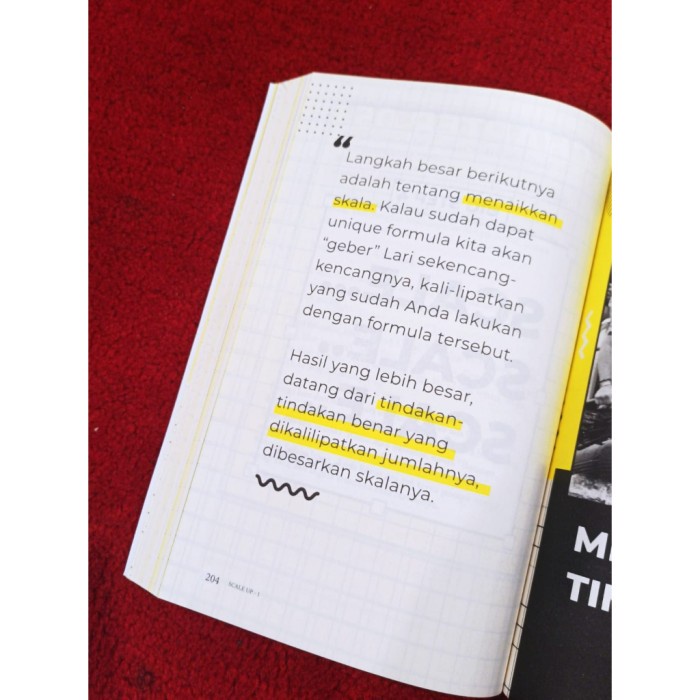 “
Langkah besar berikutnya
adalah tentang menaikkan
skala. Kalau sudah dapat
unique formula kita akan
“geber” Lari sekencang-
kencangnya, kali-lipatkan
yang sudah Anda lakukan
dengan formula tersebut.
Hasil yang lebih besar,
datang dari tindakan-
tindakan benar yang
dikalilipatkan jumlahnya,
dibesarkan skalanya.
204 SCALE UP - 1